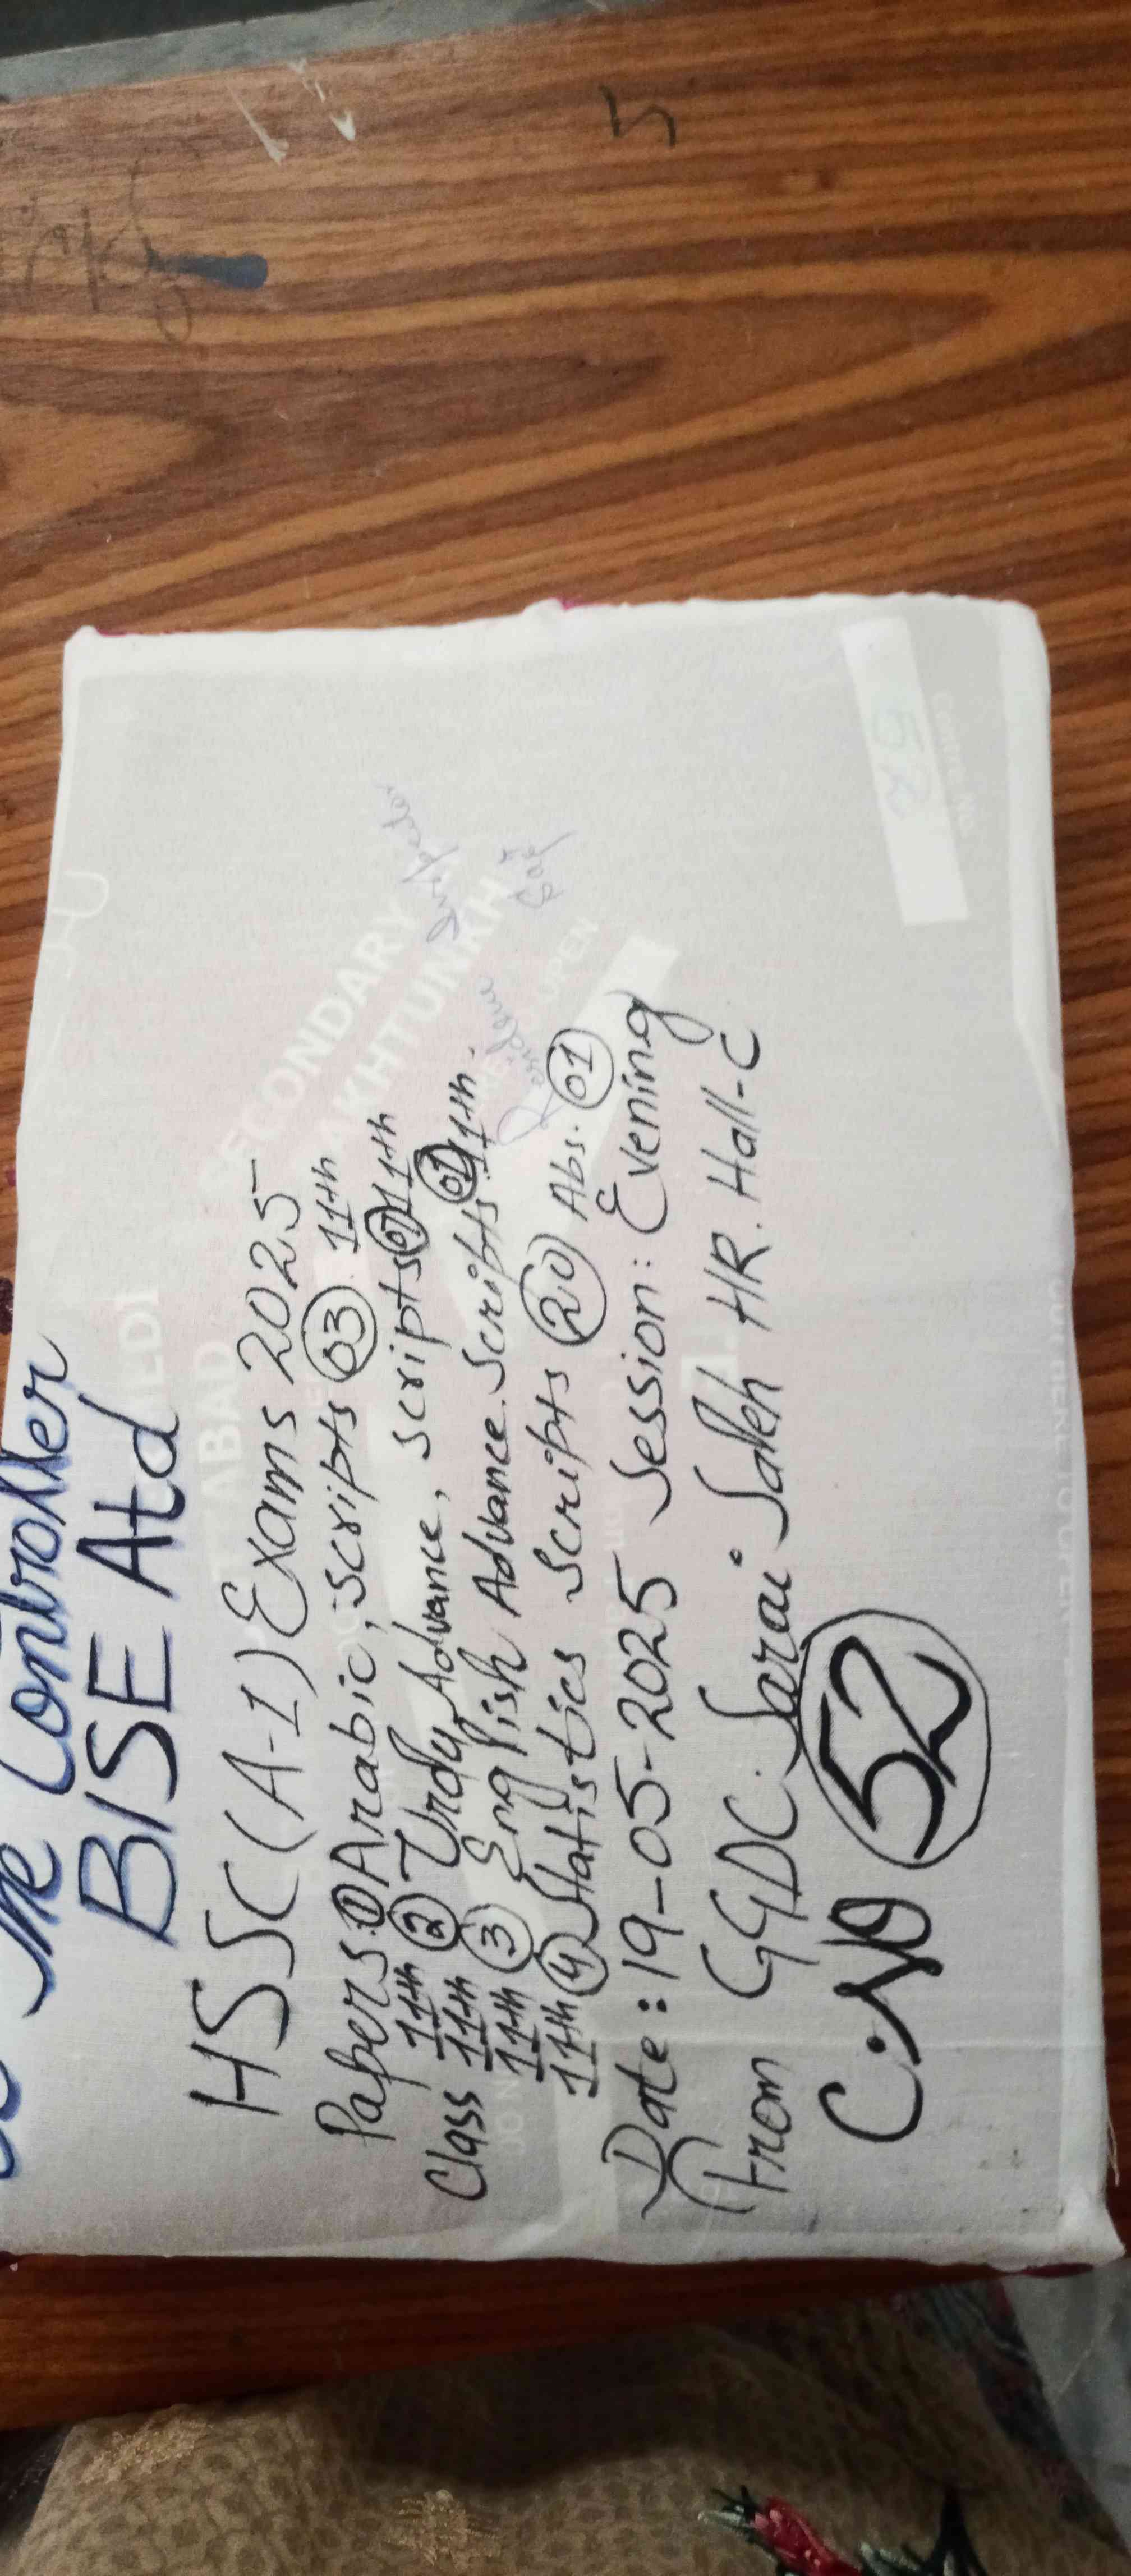 The Controller
BISE Atd
HSSC (A-I) Exams 2025
Papers ① Arabic, Scripts 03 11th
11th ② Urdu Advance, Scripts 01 11th
Class 11th ③ English Advance. Scripts 01 11th.
11th ④ Statistics Scripts 20 Abs. 01
11th
Date: 19-05-2025 Session: Evening
From GGDC. Sarai Saleh HR. Hall-C
C.NO 52
SECONDARY
AKHTUNKH
ABAD
OPEN
52